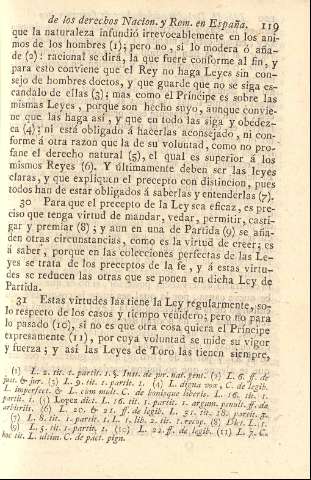 de los derechos Nacion. y Rom. en España. 119
que la naturaleza infundió irrevocablemente en los ani-
mos de los hombres (1); pero no, si lo modera ó aña-
de (2): racional se dirá, la que fuere conforme al fin, y
para esto conviene que el Rey no haga Leyes sin con-
sejo de hombres doctos, y que guarde que no se siga es-
candalo de ellas (3); mas como el Príncipe es sobre las
mismas Leyes, porque son hecho suyo, aunque convie-
ne que las haga así, y que en todo las siga y obedez-
ca (4); ni está obligado á hacerlas aconsejado, ni con-
forme á otra razon que la de su voluntad, como no pro-
fane el derecho natural (5), el qual es superior á los
mismos Reyes (6). Y últimamente deben ser las leyes
claras, y que expliquen el precepto con distincion, pues
todos han de estar obligados á saberlas y entenderlas (7).
30 Para que el precepto de la Ley sea eficaz, es pre-
ciso que tenga virtud de mandar, vedar, permitir, casti-
gar y premiar (8); y aun en una de Partida (9) se aña-
den otras circunstancias, como es la virtud de creer; es
á saber, porque en las colecciones perfectas de las Le-
yes se trata de los preceptos de la fe, y á estas virtu-
des se reducen las otras que se ponen en dicha Ley de
Partida.
31 Estas virtudes las tiene la Ley regularmente, so-
lo respecto de los casos y tiempo venidero; pero no para
lo pasado (10), si no es que otra cosa quiera el Príncipe
expresamente (11), por cuya voluntad se mide su vigor
y fuerza; y así las Leyes de Toro las tienen siempre,
(1) L. 2. tit. 1. partit. 1. §. Inst. de jur. nat. gent. (2) L. 6. ff. de
just. & jur. (3) L. 9. tit. 1. partit. 1. (4) L. digna vox, C. de legib.
L. imperfect. & L. cum mult. C. de bonisque liberis. L. 16. tit. 1.
partit. 1. (5) Lopez dict. L. 16. tit. 1. partit. 1. argum. penult. ff. de
arbitriis. (6) L. 20. & 21. ff. de legib. L. 31. tit. 18. partit. 3.
(7) L. 8. tit. 1. partit. 1. L. 1. lib. 2. tit. 1. recop. (8) Dict. L. 1.
(9) L. 5. tit. 1. partit. 1. (10) L. 22. ff. de legib. (11) L. 7. C.
hoc tit. L. ultim. C. de pact. pign.